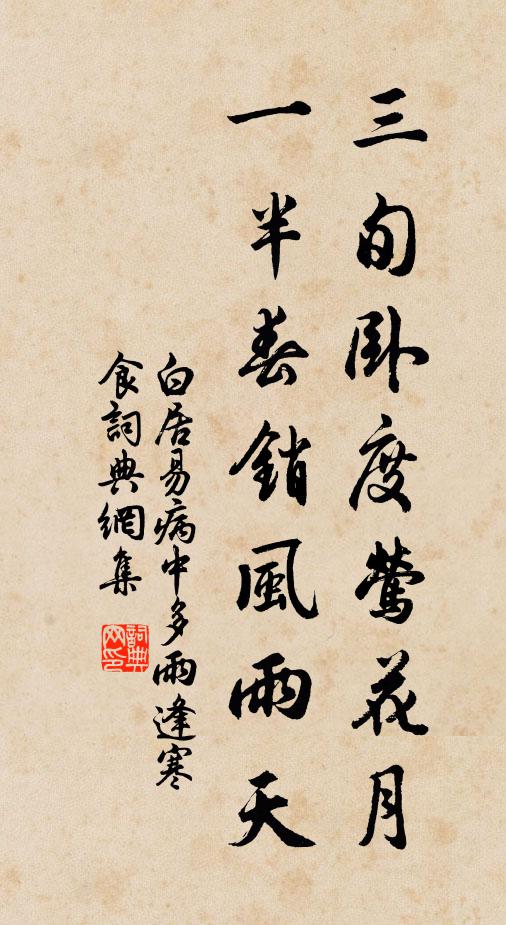 三旬卧度鶯花月
一半春銷風雨天
白居易病中多雨逢寒
食詞典網集
詞典
网印